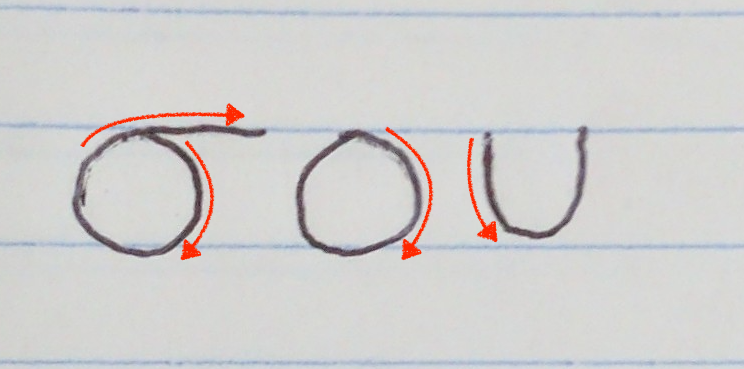 σου